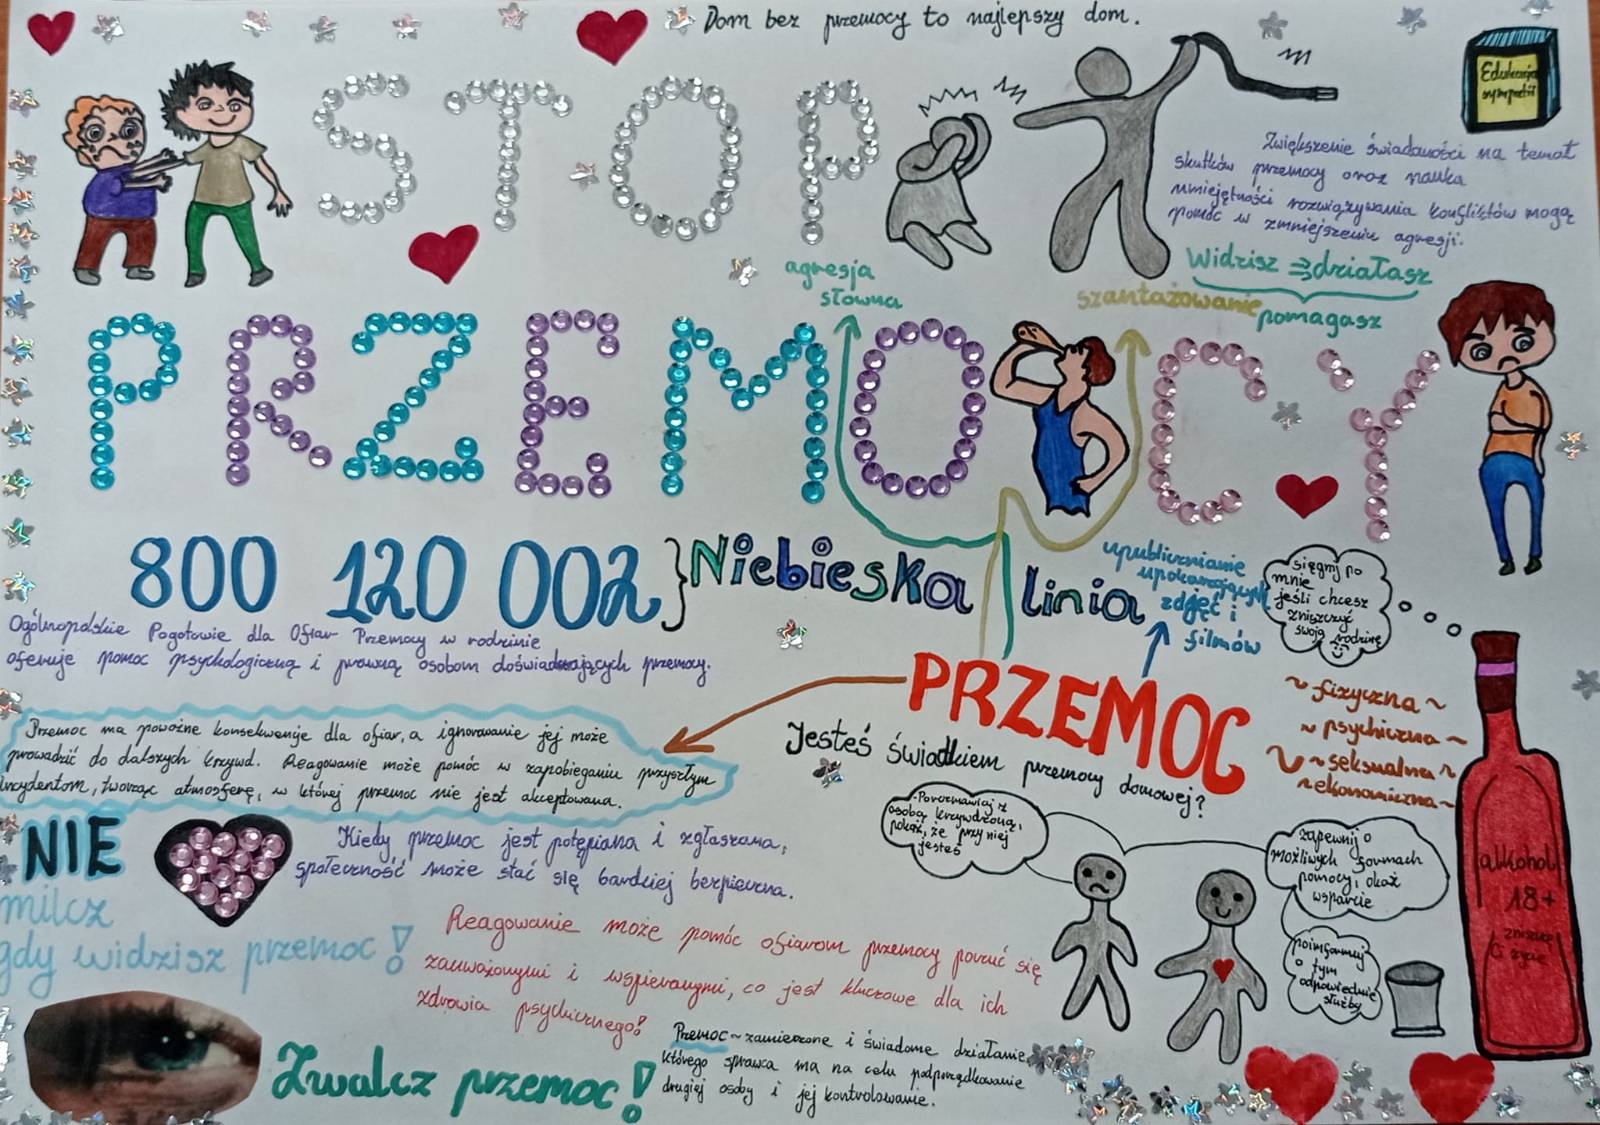 Dom bez przemocy to najlepszy dom.
STOP
PRZEMOCY
Edukacja
Zwiększenie świadomości na temat
skutków przemocy oraz nauka
umiejętności rozwiązywania konfliktów mogą
pomóc w zmniejszeniu agresji.
Widzisz ⇒działasz
pomagasz
agresja
słowna
szantażowanie
800 120 002} Niebieska linia
Ogólnopolskie Pogotowie dla Ofiar Przemocy w rodzinie
oferuje pomoc psychologiczną i prawną osobom doświadczających przemocy.
upublicznianie
upokarzających
zdjęć i
filmów
sięgnij po
mnie
jeśli chcesz
zniszczyć
swoją rodzinę
PRZEMOC
~ fizyczna ~
~ psychiczna ~
~ seksualna ~
~ ekonomiczna ~
Przemoc ma poważne konsekwencje dla ofiar, a ignorowanie jej może
prowadzić do dalszych krzywd. Reagowanie może pomóc w zapobieganiu przyszłym
incydentom, tworząc atmosferę, w której przemoc nie jest akceptowana.
Jesteś świadkiem przemocy domowej?
-Porozmawiaj z
osobą krzywdzoną,
pokaż, że przy niej
jesteś
zapewnij o
możliwych formach
pomocy, okaż
wsparcie
poinformuj
o tym
odpowiednie
służby
alkohol
18+
zniszczę
Ci życie
NIE
milcz
gdy widzisz przemoc!
Kiedy przemoc jest potępiana i zgłaszana,
społeczność może stać się bardziej bezpieczna.
Reagowanie może pomóc ofiarom przemocy poczuć się
zauważonymi i wspieranymi, co jest kluczowe dla ich
zdrowia psychicznego!
Zwalcz przemoc!
Przemoc ~ zamierzone i świadome działanie,
którego sprawca ma na celu podporządkowanie
drugiej osoby i jej kontrolowanie.